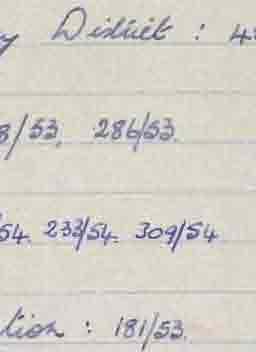 y District : 4
8/53, 286/53.
/54. 233/54. 309/54.
tion : 181/53.